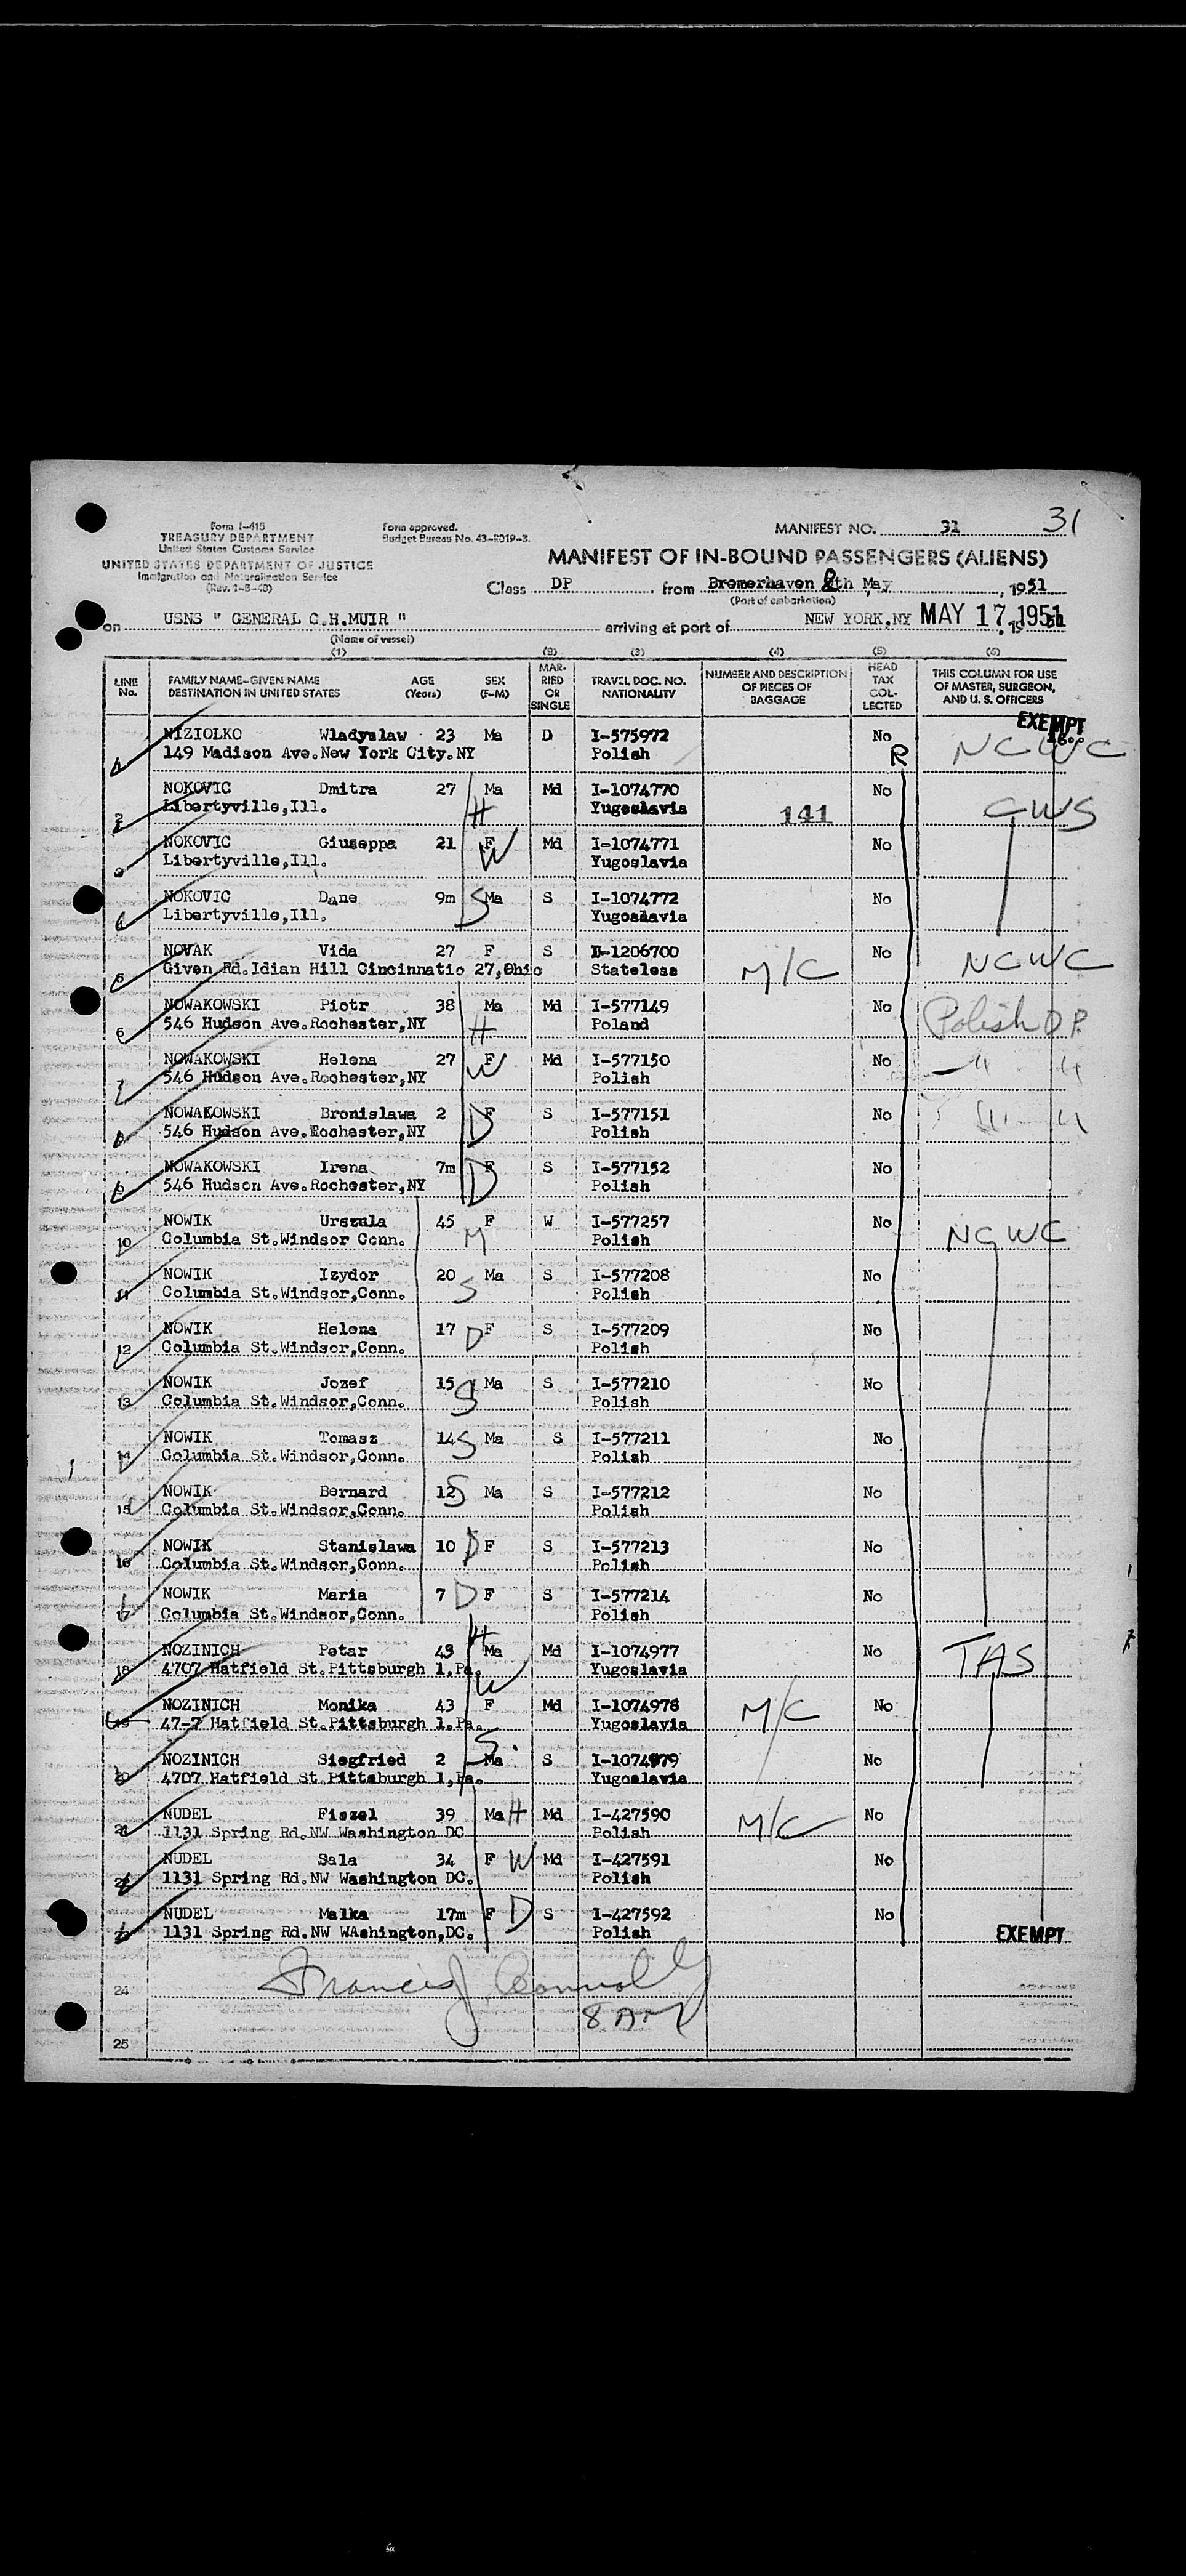 31
Form I-415
TREASURY DEPARTMENT
United States Customs Service
UNITED STATES DEPARTMENT OF JUSTICE
Immigration and Naturalization Service
Form approved.
Budget Bureau No. 43-R019-3.
MANIFEST NO. 31
MANIFEST OF IN-BOUND PASSENGERS (ALIENS)
Class DP from Bremerhaven 8th May, 1951
(Port of embarkation)
on USNS " GENERAL C.H.MUIR " arriving at port of NEW YORK,NY MAY 17 1951
(Name of vessel)
(1) (2) (3) (4) (5) (6)
LINE No. FAMILY NAME—GIVEN NAME DESTINATION IN UNITED STATES AGE (Years) SEX (F-M) MARRIED OR SINGLE TRAVEL DOC. NO. NATIONALITY NUMBER AND DESCRIPTION OF PIECES OF BAGGAGE HEAD TAX COLLECTED THIS COLUMN FOR USE OF MASTER, SURGEON, AND U. S. OFFICERS
EXEMPT
1 NIZIOLKO Wladyslaw 23 Ma D I-575972 No NCWC
149 Madison Ave.New York City.NY Polish R
2 NOKOVIC Dmitra 27 Ma Md I-1074770 No
Libertyville,Ill. H Yugoslavia 141 CWS
3 NOKOVIC Giuseppa 21 F W Md I-1074771 No
Libertyville,Ill. Yugoslavia
4 NOKOVIC Dane 9m S Ma S I-1074772 No
Libertyville,Ill. Yugoslavia
5 NOVAK Vida 27 F S D-1206700 No
Given Rd.Idian Hill Cincinnatio 27,Ohio Stateless M/C NCWC
6 NOWAKOWSKI Piotr 38 Ma Md I-577149 No
546 Hudson Ave.Rochester,NY H Poland Polish D.P.
7 NOWAKOWSKI Helena 27 F Md I-577150 No " "
546 Hudson Ave.Rochester,NY W Polish
8 NOWAKOWSKI Bronislawa 2 D F S I-577151 No " "
546 Hudson Ave.Rochester,NY Polish
9 NOWAKOWSKI Irena 7m D F S I-577152 No
546 Hudson Ave.Rochester,NY Polish
10 NOWIK Urszula 45 F W I-577257 No NCWC
Columbia St.Windsor Conn. M Polish
11 NOWIK Izydor 20 Ma S I-577208 No
Columbia St.Windsor,Conn. S Polish
12 NOWIK Helena 17 D F S I-577209 No
Columbia St.Windsor,Conn. Polish
13 NOWIK Jozef 15 S Ma S I-577210 No
Columbia St.Windsor,Conn. Polish
14 NOWIK Tomasz 14 S Ma S I-577211 No
Columbia St.Windsor,Conn. Polish
15 NOWIK Bernard 12 S Ma S I-577212 No
Columbia St.Windsor,Conn. Polish
16 NOWIK Stanislawa 10 D F S I-577213 No
Columbia St.Windsor,Conn. Polish
17 NOWIK Maria 7 D F S I-577214 No
Columbia St.Windsor,Conn. Polish
18 NOZINICH Petar 43 H Ma Md I-1074977 No TAS
4707 Hatfield St.Pittsburgh 1,Pa. W Yugoslavia
19 NOZINICH Monika 43 F Md I-1074978 M/C No
47-7 Hatfield St.Pittsburgh 1.Pa. Yugoslavia
20 NOZINICH Siegfried 2 S. Ma S I-1074979 No
4707 Hatfield St.Pittsburgh 1,Pa. Yugoslavia
21 NUDEL Fiszel 39 Ma H Md I-427590 M/C No
1131 Spring Rd.NW Washington DC Polish
22 NUDEL Sala 34 F W Md I-427591 No
1131 Spring Rd.NW Washington DC. Polish
23 NUDEL Malka 17m F D S I-427592 No
1131 Spring Rd.NW WAshington,DC. Polish EXEMPT
24 Francis J Connolly
25